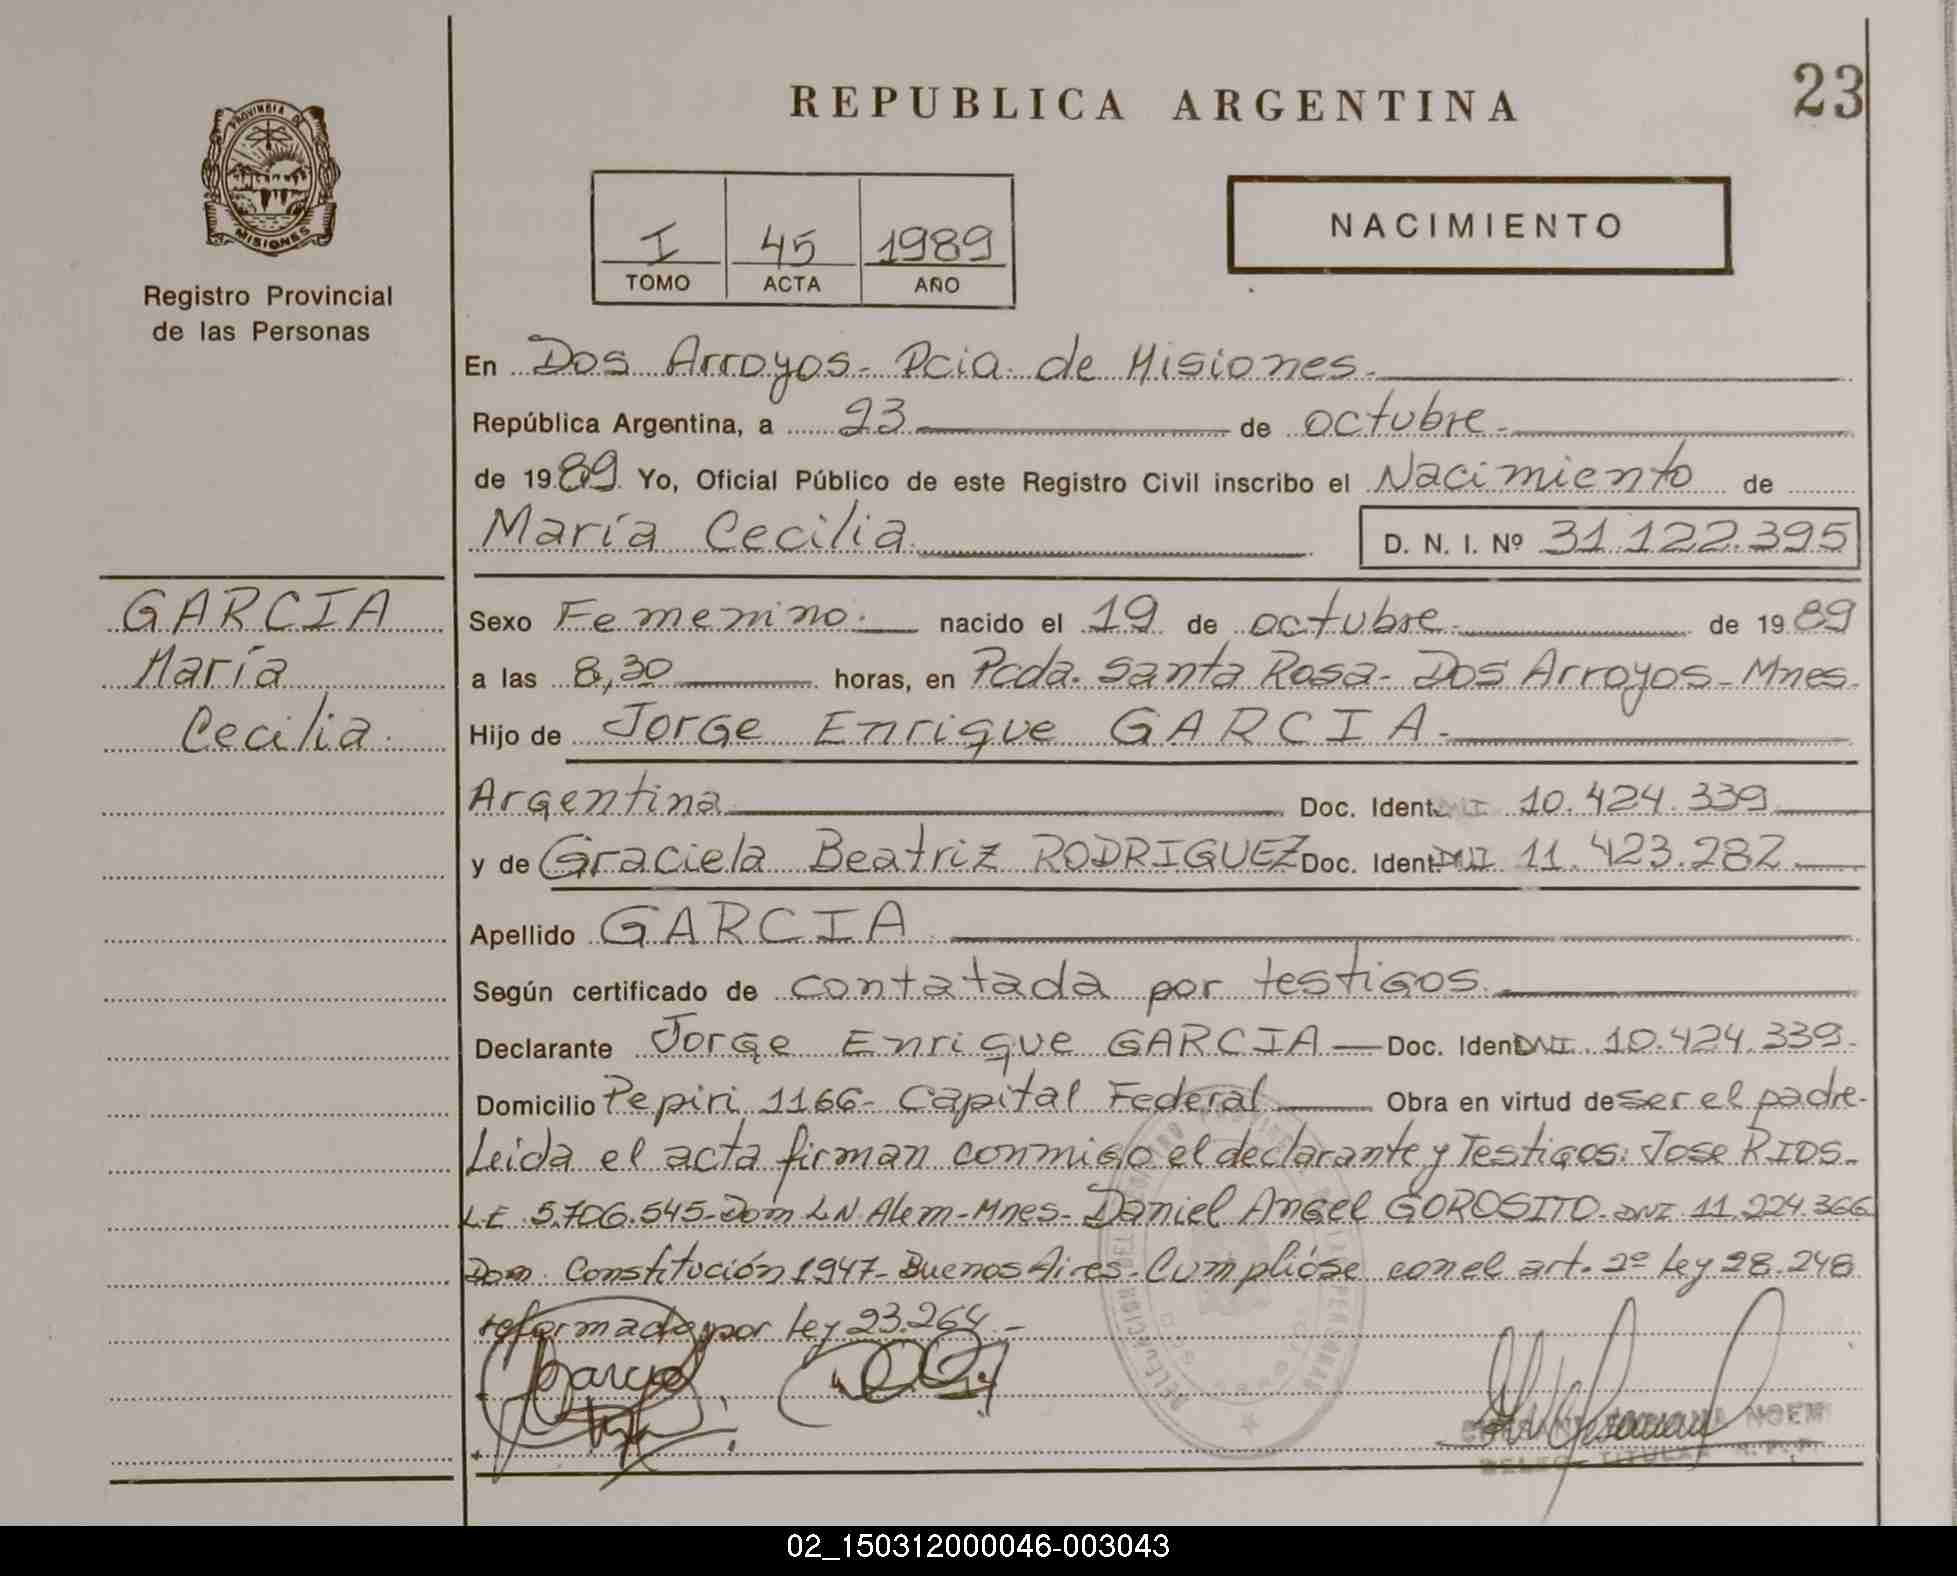 REPUBLICA ARGENTINA
23
PROVINCIA DE
MISIONES
Registro Provincial
de las Personas
I 45 1989
TOMO ACTA AÑO
NACIMIENTO
En Dos Arroyos - Pcia. de Misiones.
República Argentina, a 23 de octubre.
de 1989 Yo, Oficial Público de este Registro Civil inscribo el Nacimiento de
María Cecilia. D. N. I. Nº 31.122.395
GARCIA
María
Cecilia.
Sexo Femenino. nacido el 19 de octubre. de 1989
a las 8,30 horas, en Pcda. Santa Rosa - Dos Arroyos - Mnes.
Hijo de Jorge Enrique GARCIA.
Argentina Doc. Ident. DNI 10.424.339
y de Graciela Beatriz RODRIGUEZ Doc. Ident. DNI 11.423.282
Apellido GARCIA
Según certificado de contatada por testigos.
Declarante Jorge Enrique GARCIA Doc. Ident DNI. 10.424.339.
Domicilio Pepiri 1166 - Capital Federal Obra en virtud de ser el padre.
Leida el acta firman conmigo el declarante y Testigos: Jose RIOS -
LE 5.706.545 - Dom LN Alem - Mnes - Daniel Angel GOROSITO - DNI 11.224.366
Dom. Constitución 1947 - Buenos Aires. Cumplióse con el art. 2º Ley 28.248
reformada por Ley 23.264. -
NOEMI
TITULAR
02_150312000046-003043